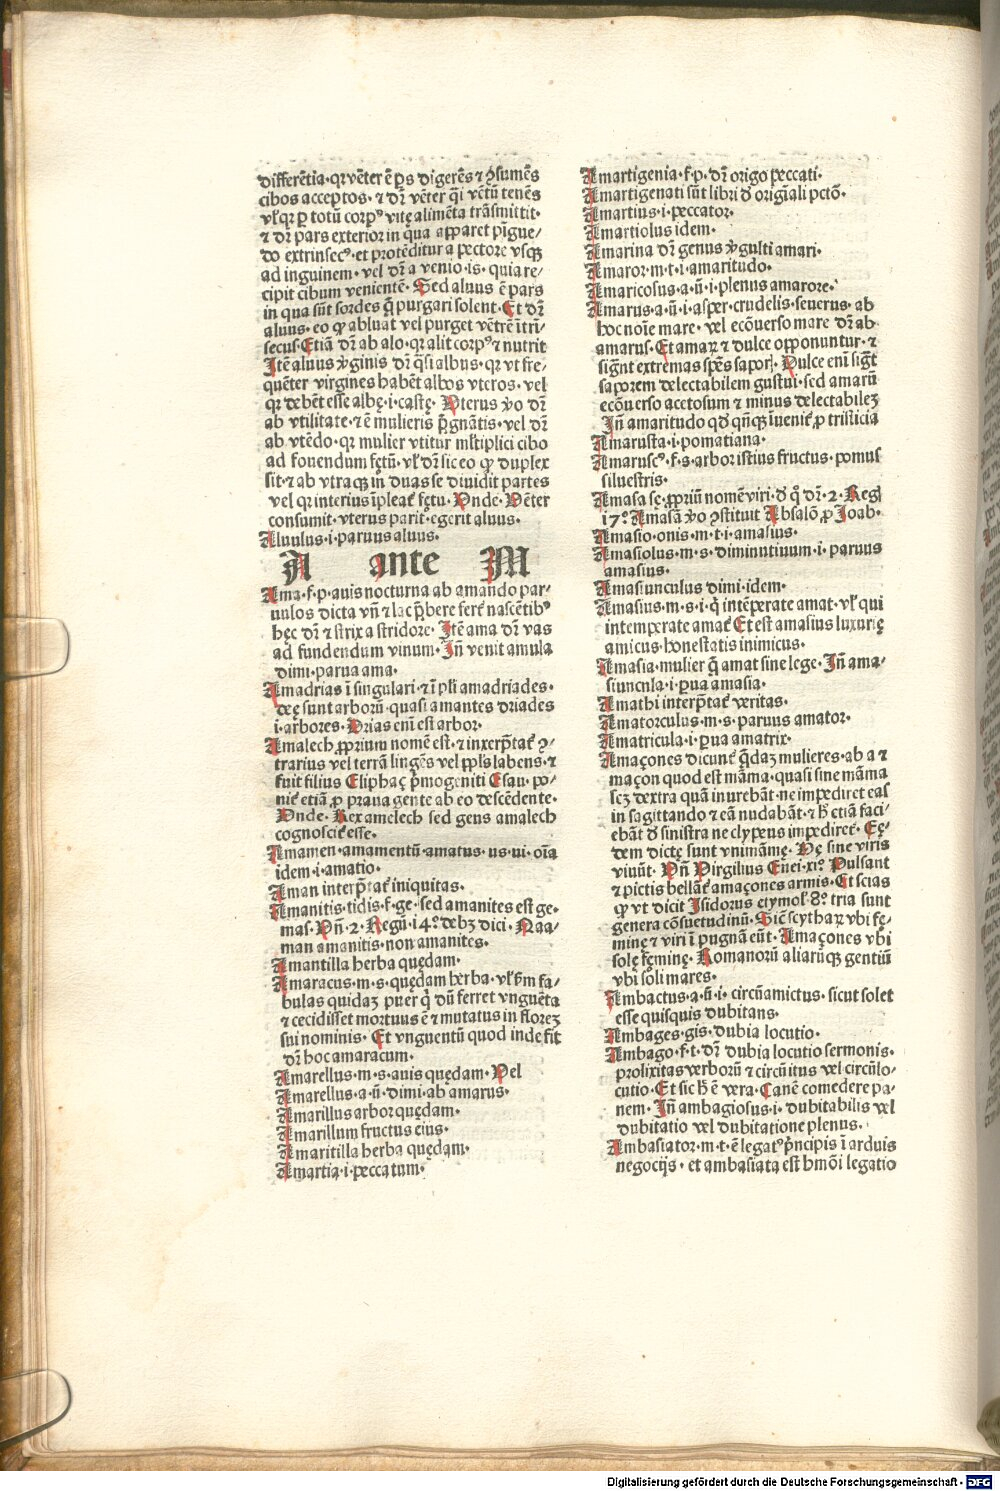 differētia· qr vēter ē ꝑs digerēs ⁊ ꝯsumēs
cibos acceptos· ⁊ dr̄ vēter q̄i vētū tenēs
vl̓ qr ꝑ totū corpꝰ vitę alimēta trāsmittit·
⁊ dr̄ pars exterior in qua apparet pīgue/
do extrinsecꝰ· et protēditur a pectore vsqꝫ
ad inguinem· vel dr̄ a venio·is· quia re/
cipit cibum venientē· Sed aluus ē pars
in qua sūt sordes q̄ purgari solent· Et dr̄
aluus· eo ꝙ abluat vel purget vētrē ītrī/
secus· Etiā dr̄ ab alo· qr alit corpꝰ ⁊ nutrit
Jtē aluus v̓ginis dr̄ q̄si albus· qr vt fre/
quēter virgines habēt albos vteros· vel
qr debēt esse albę·i·castę· Uterus v̓o dr̄
ab vtilitate· ⁊ ē mulieris p̄gnātis· vel dr̄
ab vtēdo· qr mulier vtitur ml̓tiplici cibo
ad fouendum fętū· vl̓ dr̄ sic eo ꝙ duplex
sit· ⁊ ab vtraqꝫ in duas se diuidit partes
vel qr interius īpleat̄ fętu· Unde· Uēter
consumit· vterus parit· egerit aluus·
Aluulus·i·paruus aluus·
A ante M
Ama·f·p·auis nocturna ab amando par·
uulos dicta vn̄ ⁊ lac p̄bere fert̄ nascētibꝰ
hęc dr̄ ⁊ strix a stridore· Jtē ama dr̄ vas
ad fundendum vinum· Jn̄ venit amula
dimi· parua ama·
Amadrias ī singulari· ⁊ ī pl̓i amadriades·
deę sunt arborū· quasi amantes driades
i·arbores· Drias enī est arbor·
Amalech ꝓprium nomē est· ⁊ inxerp̄tat̄ ꝯ/
trarius vel terrā lingēs vel ppl̓s labens· ⁊
fuit filius Eliphaç p̄mogeniti Esau· po/
nit̄ etiā ꝓ praua gente ab eo descēdente·
Unde· Rex amelech sed gens amalech
cognoscit̄ esse·
Amamen· amamentū· amatus· us·ui· oīa
idem·i·amatio·
Aman interp̄tat̄ iniquitas·
Amanitis·tidis·f·ge·sed amanites est ge·
mas· Vn̄·2· Regū·i4°·debꝫ dici· Naa/
man amanitis· non amanites·
Amantilla herba quędam·
Amaracus·m·s·quędam herba· vl̓ ẜm fa/
bulas quidaꝫ puer q̄ dū ferret vnguēta
⁊ cecidisset mortuus ē ⁊ mutatus in floreꝫ
sui nominis· Et vnguentū quod inde fit
dr̄ hoc amaracum·
Amarellus·m·s·auis quędam· Vel
Amarellus·a·ū·dimi·ab amarus·
Amarillus arbor quędam·
Amarillum fructus eius·
Amaritilla herba quędam·
Amartia·i·peccatum·
Amartigenia·f·p·dr̄ origo peccati·
Amartigenati sūt libri d̓ origīali pctō·
Amartius·i·peccator·
Amartiolus idem·
Amarina dr̄ genus v̓gulti amari·
Amaror·m·t·i·amaritudo·
Amaricosus·a·ū·i·plenus amarore·
Amarus·a·ū·i·asper·crudelis·seuerus· ab
hoc noīe mare· vel ecōuerso mare dr̄ ab·
amarus· Et amaꝝ ⁊ dulce opponuntur· ⁊
sigūt extremas spēs saporꝝ· Dulce enī sigūt
saporem delectabilem gustui· sed amarū
ecōuerso acetosum ⁊ minus delectabileꝫ
Jn̄ amaritudo qd̓ qn̄qꝫ īuenit̄ ꝓ tristicia
Amarusta·i·pomatiana·
Amaruscꝰ·f·s·arbor istius fructus· pomus
siluestris·
Amasa sę· ꝓpriū nomē viri· d̓ q̄ dr̄·2·Reg̓
i7°·Amasā v̓o ꝯstituit Absalō ꝓ Joab·
Amasio·onis·m·t·i·amasius·
Amasiolus·m·s·diminutiuum·i·paruus
amasius·
Amasiunculus dimi·idem·
Amasius·m·s·i·q̄ intēperate amat· vl̓ qui
intemperate amat̄ Et est amasius luxurię
amicus· honestatis inimicus·
Amasia· mulier q̄ amat sine lege· Jn̄ ama/
siuncula·i·ꝑua amasia·
Amathi interp̄tat̄ veritas·
Amatorculus·m·s·paruus amator·
Amatricula·i·ꝑua amatrix·
Amaçones dicunt̄ q̄daꝫ mulieres· ab a ⁊
maçon quod est māma· quasi sine māma
scꝫ dextra quā inurebāt· ne impediret eas
in sagittando ⁊ eā nudabāt· ⁊ h̄ etiā faci/
ebāt d̓ sinistra ne clypeus impediret̄· Eę/
dem dictę sunt vnimāmę· Hę sine viris
viuūt· Vn̄ Virgilius Enei·xi°· Pulsant
⁊ pictis bellāt̄ amaçones armis· Et scias
ꝙ vt dicit Jsidorus etymol̓·8°·tria sunt
genera cōsuetudinū· Sicut̄ scythaꝝ vbi fę/
minę ⁊ viri ī pugnā eūt· Amaçones vbi
solę fęminę· Romanorū aliarūqꝫ gentiū
vbi soli mares·
Ambactus·a·ū·i·circūamictus· sicut solet
esse quisquis dubitans·
Ambages·gis·dubia locutio·
Ambago·f·t·dr̄ dubia locutio sermonis·
prolixitas verborū ⁊ circūitus vel circūlo/
cutio· Et sic h̄ ē vera· Canē comedere pa/
nem· Jn̄ ambagiosus·i·dubitabilis vel
dubitatio vel dubitatione plenus·
Ambasiator·m·t·ē legatꝰ p̄ncipis ī arduis
negocijs· et ambasiata est hmōi legatio
Digitalisierung gefördert durch die Deutsche Forschungsgemeinschaft - DFG